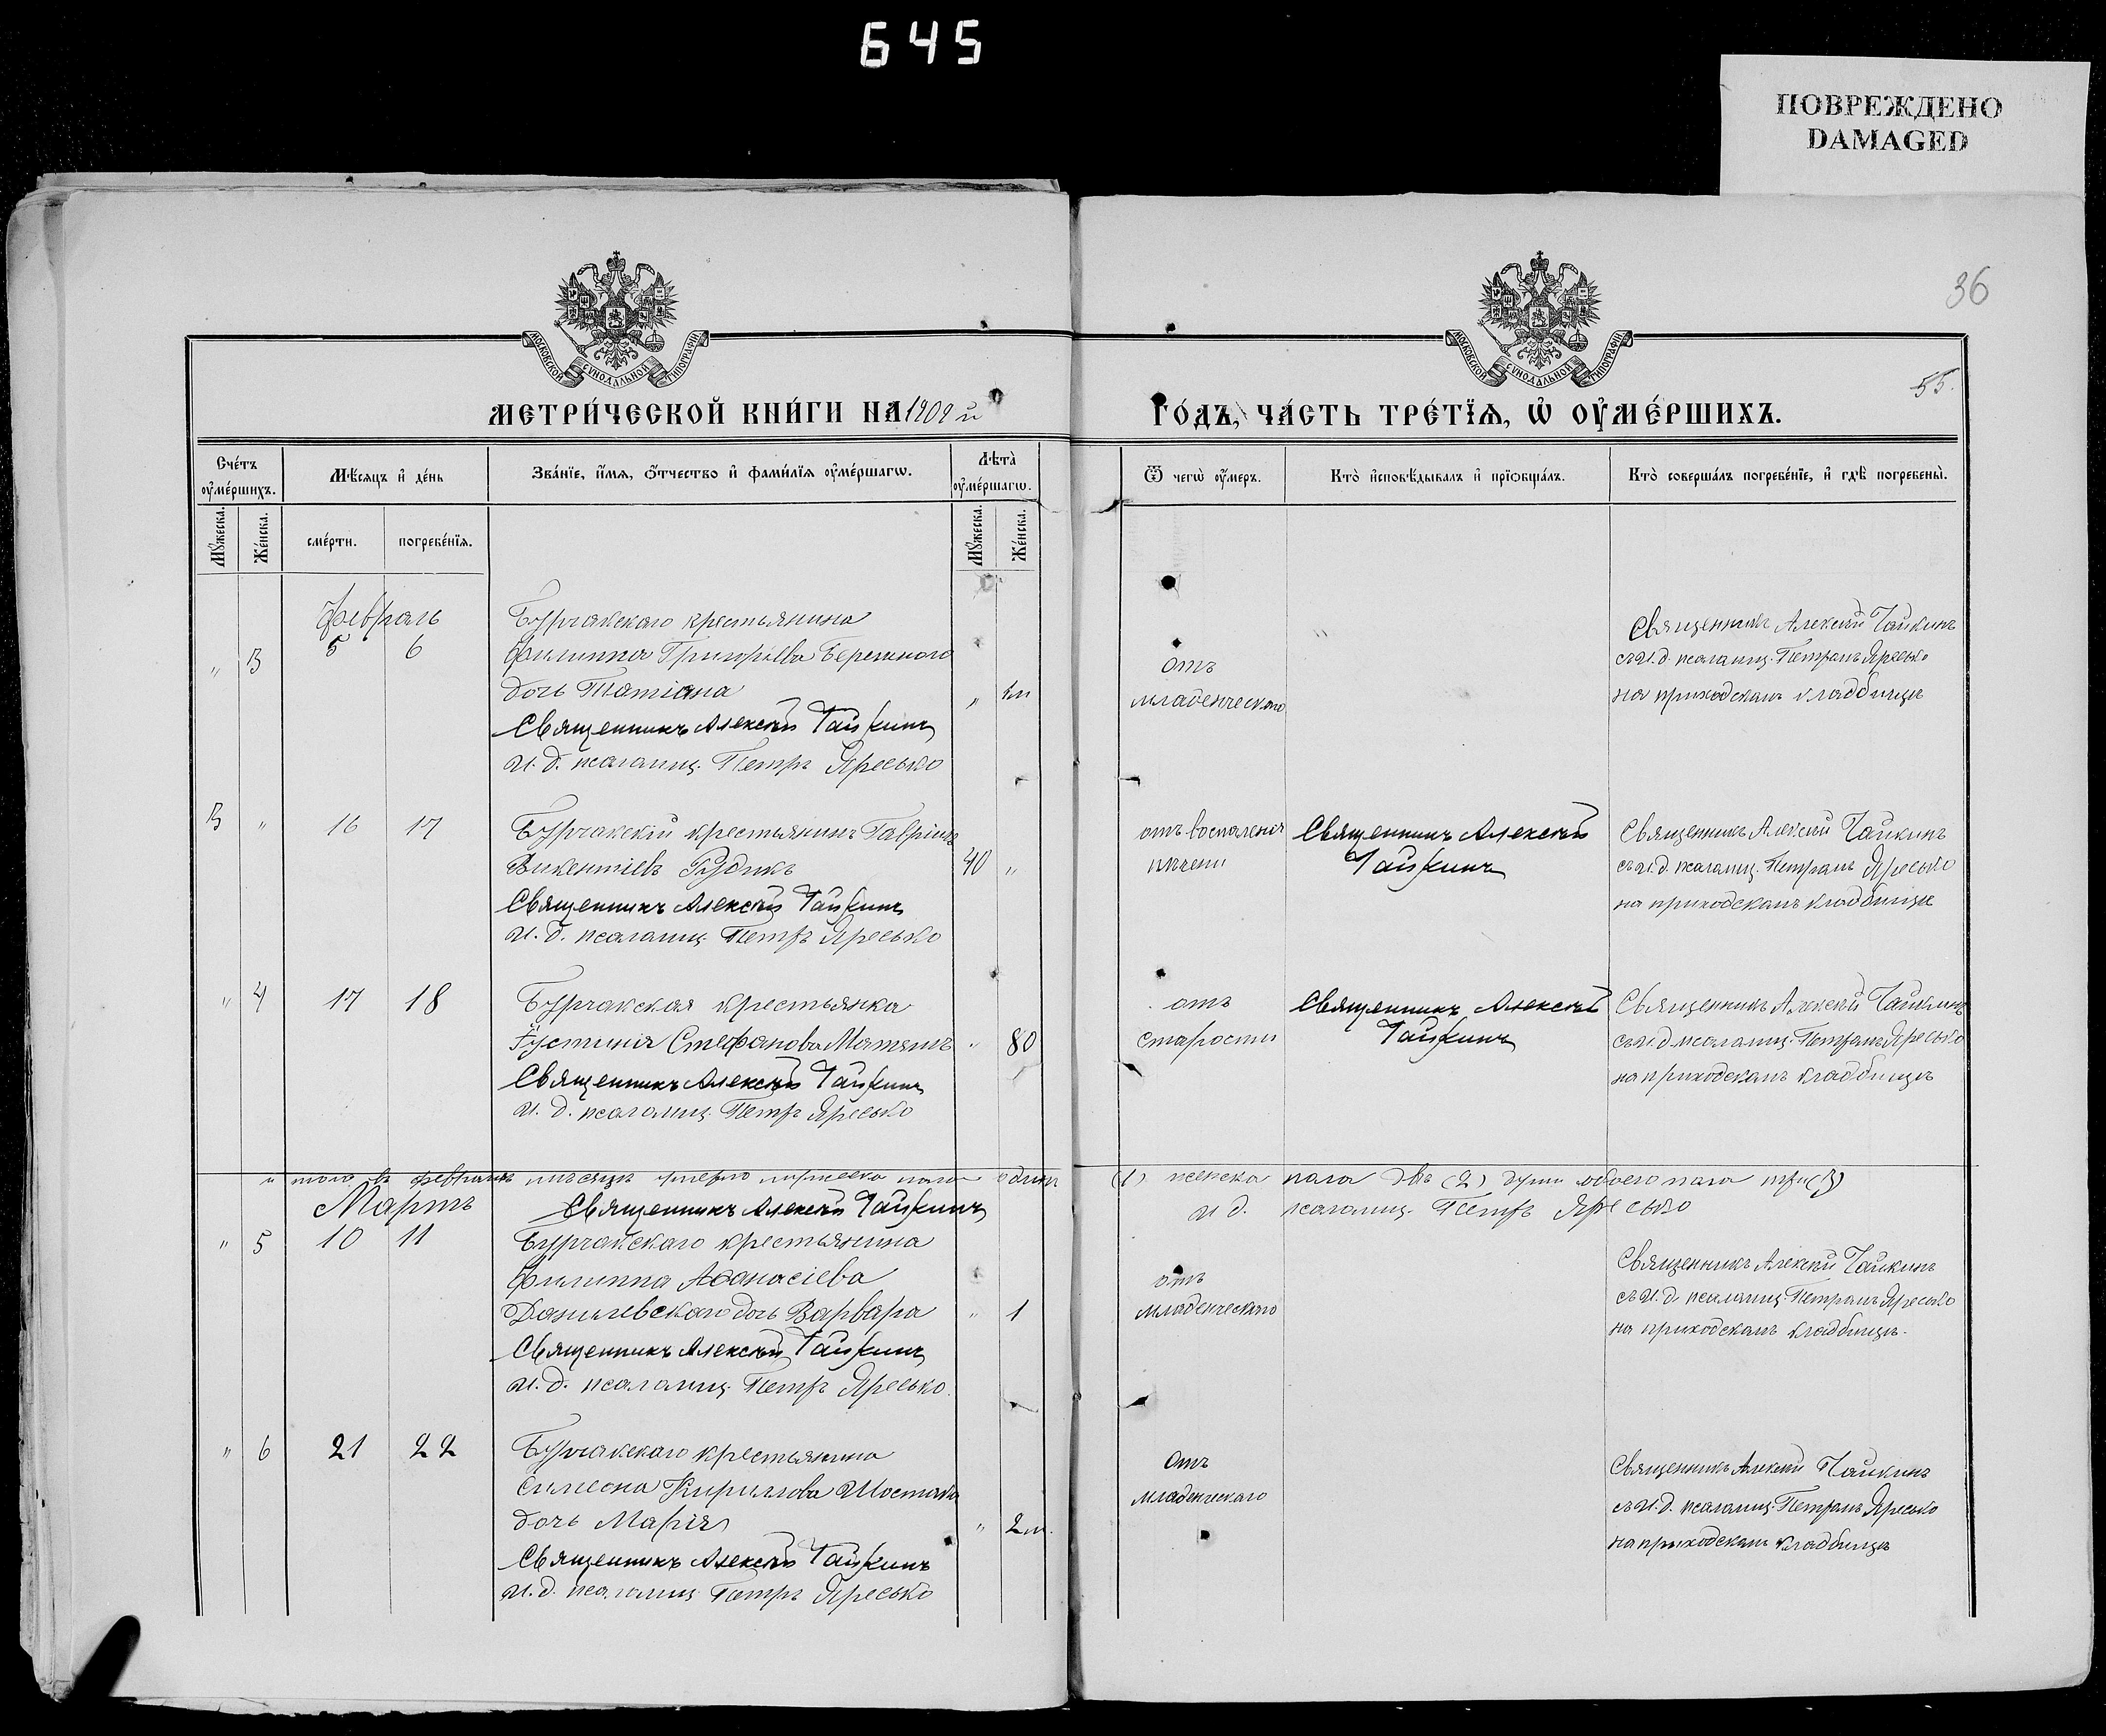 645
ПОВРЕЖДЕНО
DAMAGED
36
55.
МОСКОВСКОЙ СѴНОДАЛЬНОЙ ТИПОГРАФІИ
МОСКОВСКОЙ СѴНОДАЛЬНОЙ ТИПОГРАФІИ
МЕТРИ́ЧЕСКОЙ КНИ́ГИ НА 1909 й
ГО́ДЪ, ЧА́СТЬ ТРЕ́ТЇѦ, Ѡ҆ ОУ҆МЕ́РШИХЪ.
Сче́тъ оу҆ме́ршихъ.
Мѣ́сѧцъ и҆ де́нь
Зва́нїе, и҆́мѧ, ѻ҆́тчество и҆ фами́лїѧ оу҆ме́ршагѡ.
Лѣта̀ оу҆ме́ршагѡ.
Ѿ чегѡ̀ оу҆́меръ.
Кто̀ и҆сповѣ́дывалъ и҆ прїѡбща́лъ.
Кто̀ соверша́лъ погребе́нїе, и҆ гдѣ̀ погребены̀.
Мꙋ́жеска.
Же́нска.
сме́рти.
погребе́нїѧ.
Мꙋ́жеска.
Же́нска.
Февраль
" 3 5 6 Бурчакскаго крестьянина
Филиппа Григоріева Бережного
дочь Татіана "
Священникъ Алексѣй Чайкинъ
И. д. псаломщ. Петръ Яресько
отъ
младенческаго
Священникъ Алексѣй Чайкинъ
съ И. д. псаломщ. Петромъ Яресько
на приходскомъ кладбищѣ
3 " 16 17 Бурчакскій крестьянинъ Гавріилъ
Викентіевъ Рудикъ 40 "
Священникъ Алексѣй Чайкинъ
И. д. псаломщ. Петръ Яресько
отъ воспаленія
печени
Священникъ Алексѣй
Чайкинъ
Священникъ Алексѣй Чайкинъ
съ И. д. псаломщ. Петромъ Яресько
на приходскомъ кладбищѣ
" 4 17 18 Бурчакская крестьянка
Іустинія Стефанова " 80
Священникъ Алексѣй Чайкинъ
И. д. псаломщ. Петръ Яресько
отъ
старости
Священникъ Алексѣй
Чайкинъ
Священникъ Алексѣй Чайкинъ
съ И. д. псаломщ. Петромъ Яресько
на приходскомъ кладбищѣ
итого въ февралѣ мѣсяцѣ умерло мужеска пола одинъ (1) женска пола двѣ (2) души обоего пола три (3)
Мартъ Священникъ Алексѣй Чайкинъ И. д. псаломщ. Петръ Яресько
" 5 10 11 Бурчакскаго крестьянина
Филиппа Аѳанасіева
Данилевскаго дочь Варвара " 1
Священникъ Алексѣй Чайкинъ
И. д. псаломщ. Петръ Яресько.
отъ
младенческаго
Священникъ Алексѣй Чайкинъ
съ И. д. псаломщ. Петромъ Яресько
на приходскомъ кладбищѣ.
" 6 21 22 Бурчакскаго крестьянина
Симеона Кириллова Шостака
дочь Марія " 2 м.
Священникъ Алексѣй Чайкинъ
И. д. псаломщ. Петръ Яресько
Отъ
младенческаго
Священникъ Алексѣй Чайкинъ
съ И. д. псаломщ. Петромъ Яресько
на приходскомъ кладбищѣ